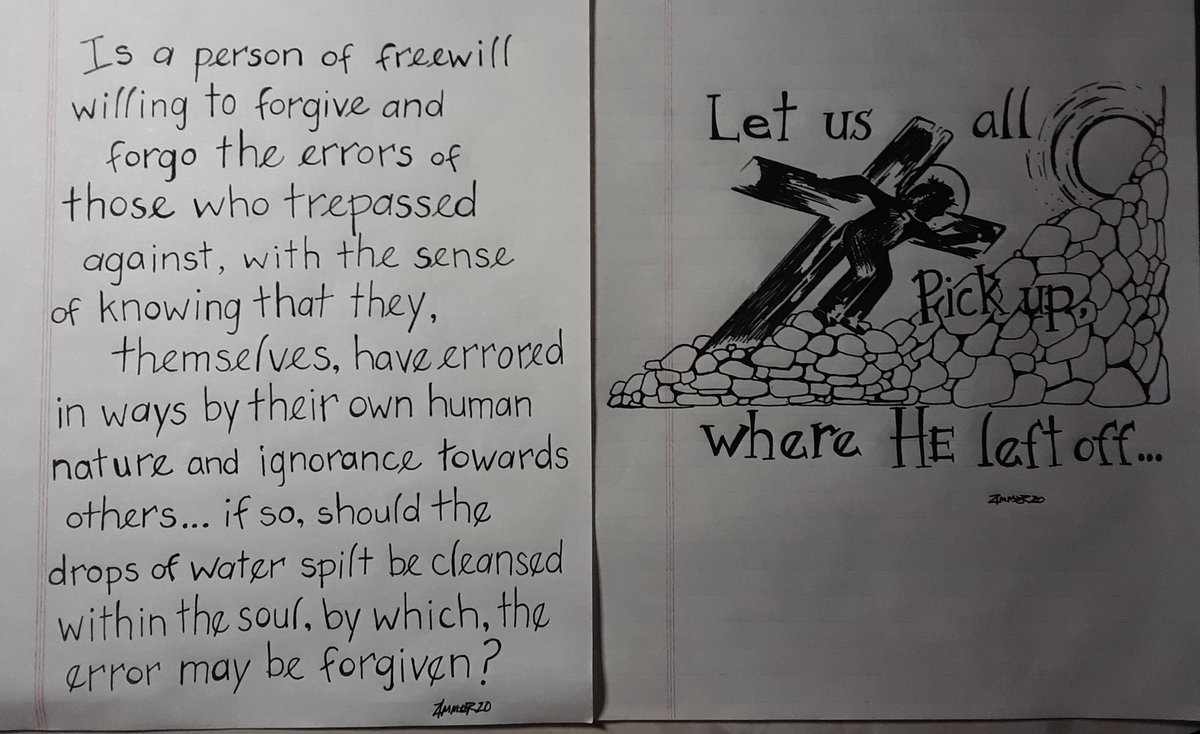 Is a person of freewill
willing to forgive and
forgo the errors of
those who trepassed
against, with the sense
of knowing that they,
themselves, have errored
in ways by their own human
nature and ignorance towards
others... if so, should the
drops of water spilt be cleansed
within the soul, by which, the
error may be forgiven?
ZIMMER20
Let us all
Pick up,
where HE left off...
ZIMMER20